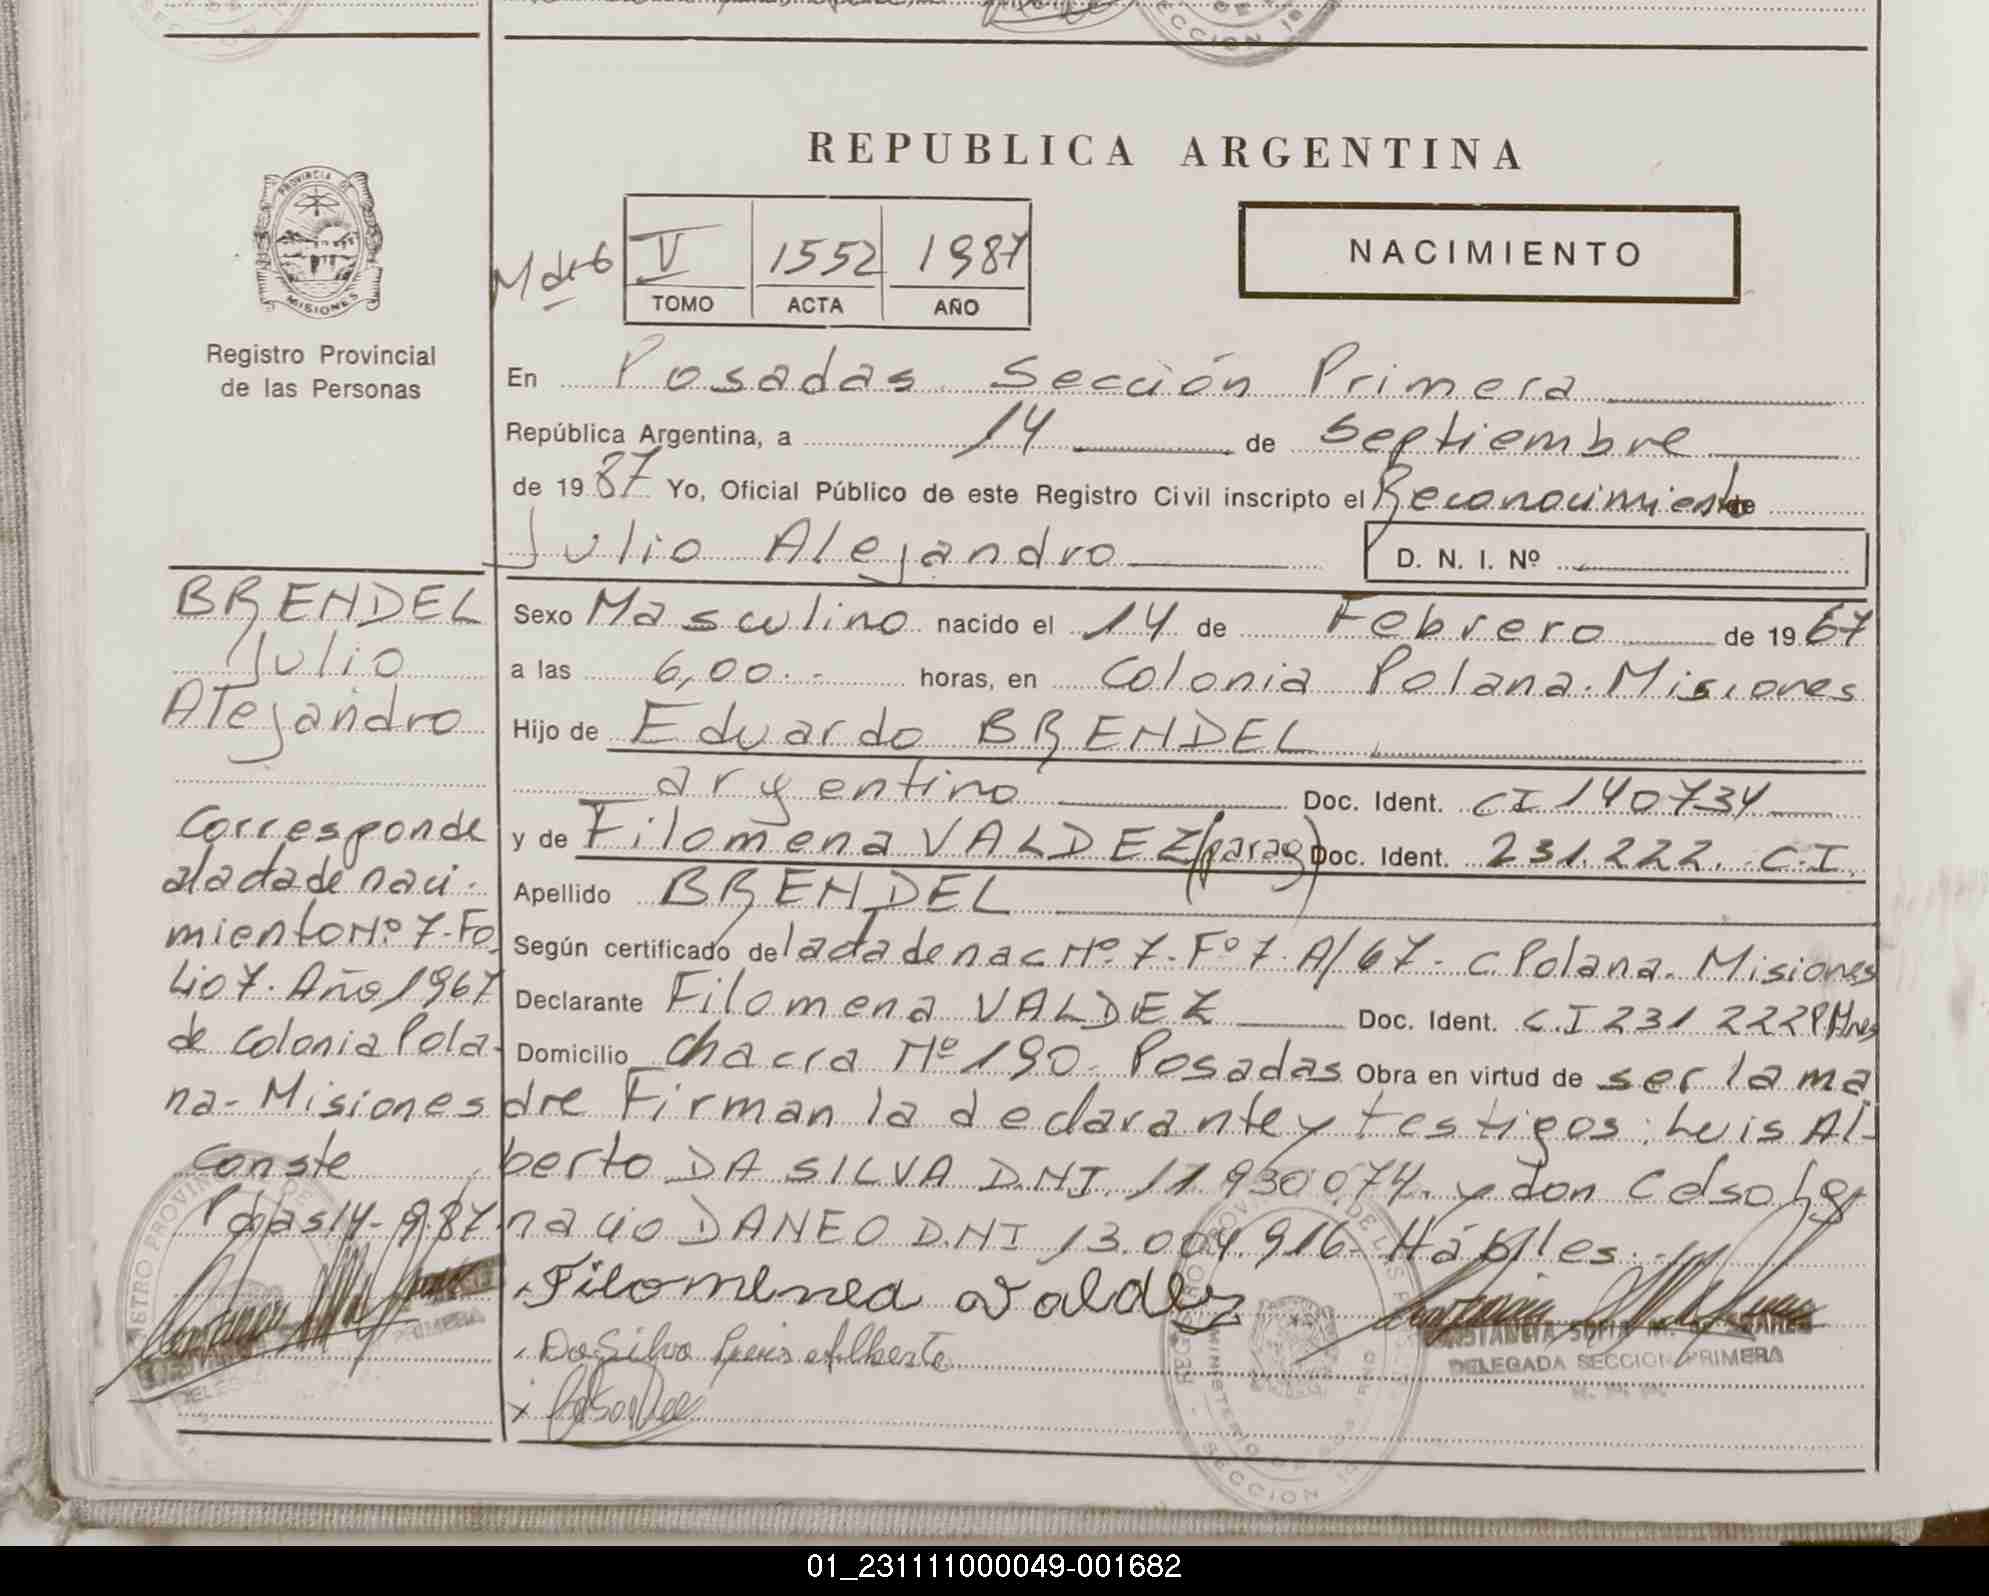 REPUBLICA ARGENTINA
PROVINCIA DE
MISIONES
Registro Provincial
de las Personas
V 1552 1987
TOMO ACTA AÑO
NACIMIENTO
En Posadas Sección Primera
República Argentina, a 14 de Septiembre
de 1987 Yo, Oficial Público de este Registro Civil inscripto el Reconocimiento
Julio Alejandro D. N. I. Nº
BRENDEL
Julio
Alejandro
Corresponde
al acta de naci-
miento Nº 7-Fo
lio 7. Año 1967
de Colonia Pola-
na- Misiones
conste
Pdas 14-9-87.
Sexo Masculino nacido el 14 de Febrero de 1967
a las 6,00.- horas, en Colonia Polana. Misiones
Hijo de Eduardo BRENDEL
argentino Doc. Ident. CI 140734
y de Filomena VALDEZ (parag) Doc. Ident. 231.222. C.I.
Apellido BRENDEL
Según certificado del acta de nac Nº 7. Fº 7. A/67- C. Polana. Misiones
Declarante Filomena VALDEZ Doc. Ident. CI 231 222 P Mnes
Domicilio Chacra Nº 190. Posadas Obra en virtud de ser la ma
dre Firman la declarante y testigos: Luis Al-
berto DA SILVA D.NI. 11.930.074. y don Celso Ig
nacio DANEO D.NI 13.004.916. Hábiles.-
Filomena Valdez
Da Silva Luis Alberto
DELEGADA SECCION PRIMERA
01_231111000049-001682